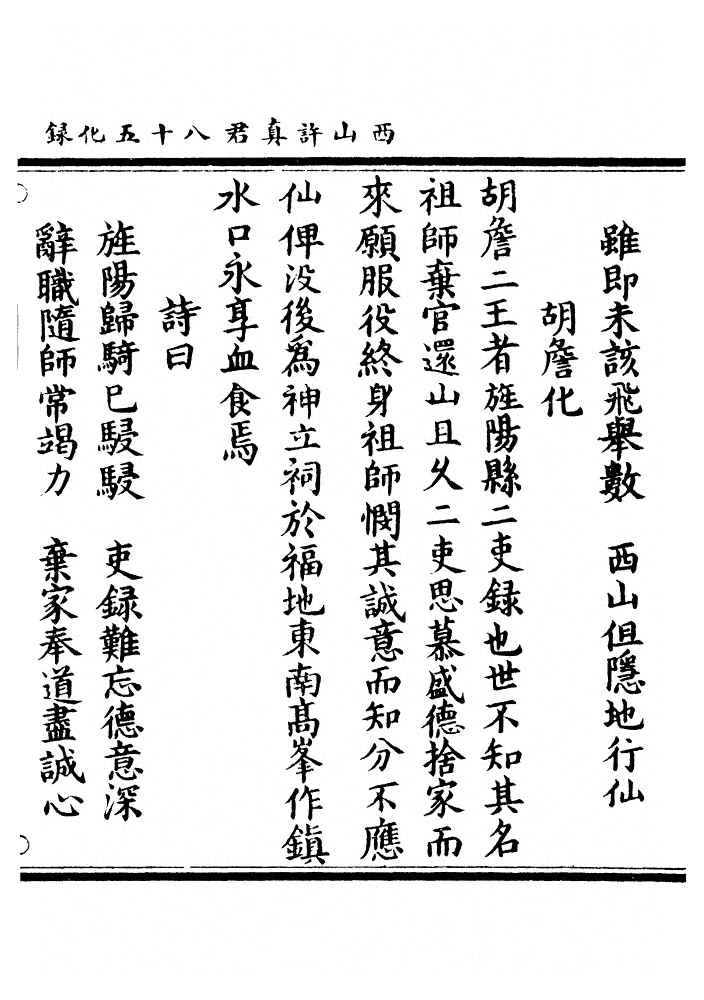 西山許真君八十五化録
雖即未該飛舉數　西山但隱地行仙
胡詹化
胡詹二王者旌陽縣二吏録也世不知其名
祖師棄官還山且久二吏思慕盛德捨家而
來願服役終身祖師憫其誠意而知分不應
仙俾没後爲神立祠於福地東南髙峯作鎮
水口永享血食焉
詩曰
旌陽歸騎已駸駸　吏録難忘德意深
辭職隨師常竭力　棄家奉道盡誠心